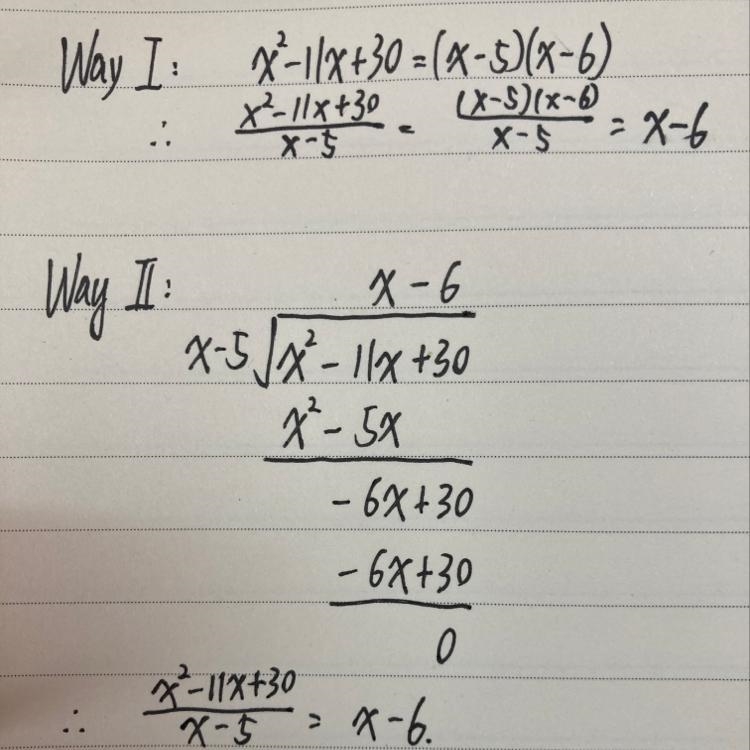 Way I: x²-11x+30=(x-5)(x-6)
∴ \frac{x²-11x+30}{x-5} = \frac{(x-5)(x-6)}{x-5} = x-6
Way II:
x-6
x-5√x²-11x+30
x²-5x
-6x+30
-6x+30
0
∴ \frac{x²-11x+30}{x-5} = x-6.